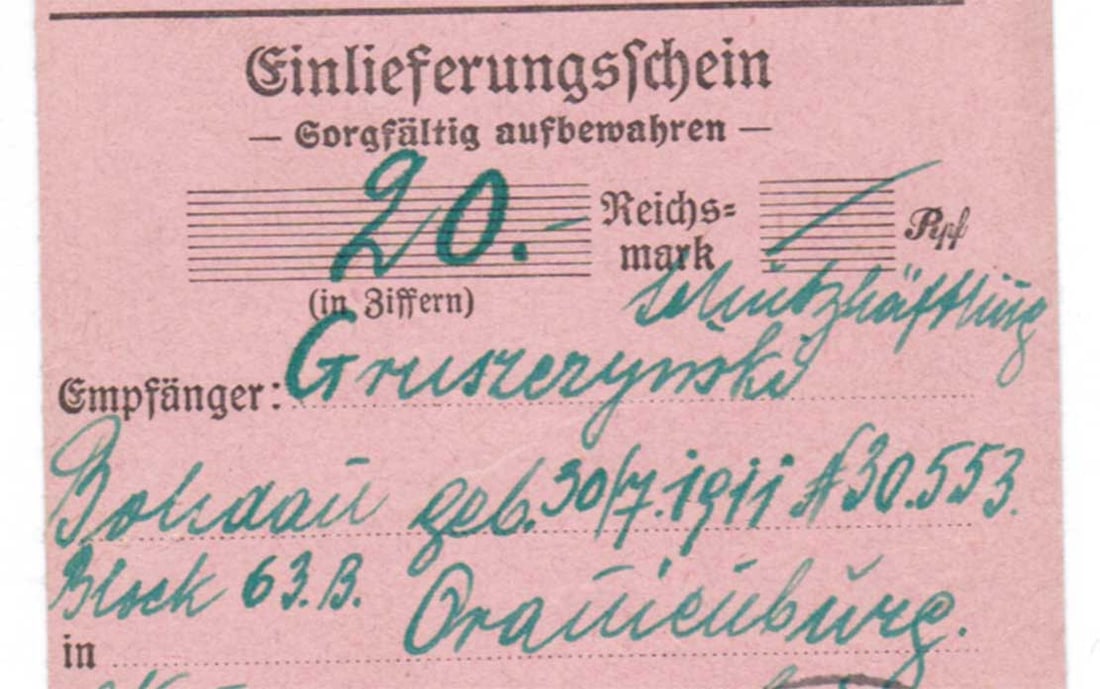 Einlieferungsschein
— Sorgfältig aufbewahren —
20.- Reichs=
mark Rpf
(in Ziffern) Schutzhäftling
Empfänger: Gruszczynski
Bohdan geb. 30/7.1911 № 30.553.
Block 63.B. Oranienburg.
in